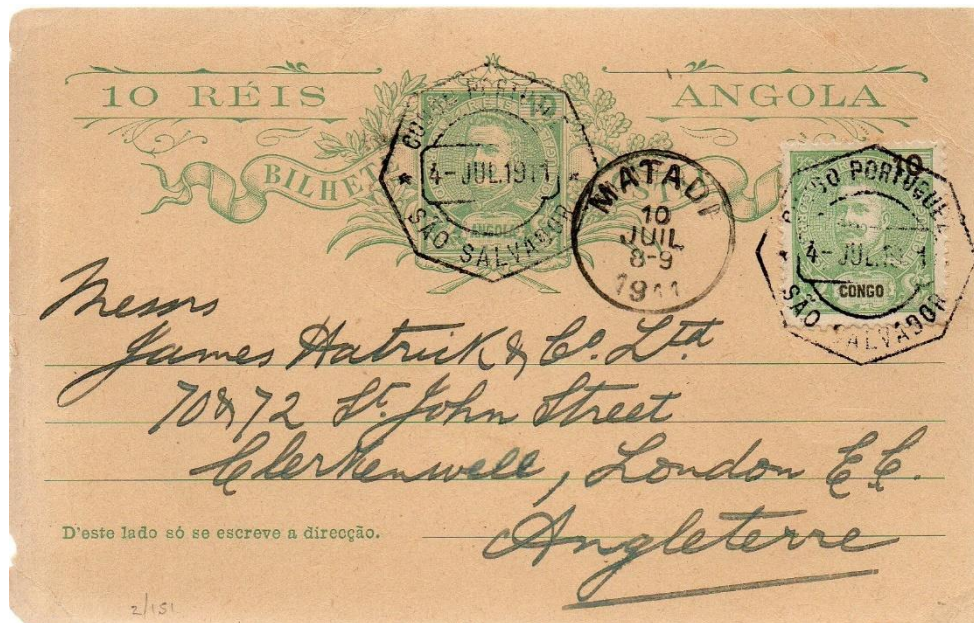 10 RÉIS
ANGOLA
BILHET
10
ANGOLA
CONGO PORTUGUEZ
4-JUL.1911
SÃO SALVADOR
MATADI
10
JUIL
8-9
1911
10
CONGO
CONGO PORTUGUEZ
4-JUL.19 1
SÃO SALVADOR
Messrs
James Hatrick & Co. Ltd
70 & 72 St. John Street
Clerkenwell, London E.C.
Angleterre
D'este lado só se escreve a direcção.
2/151